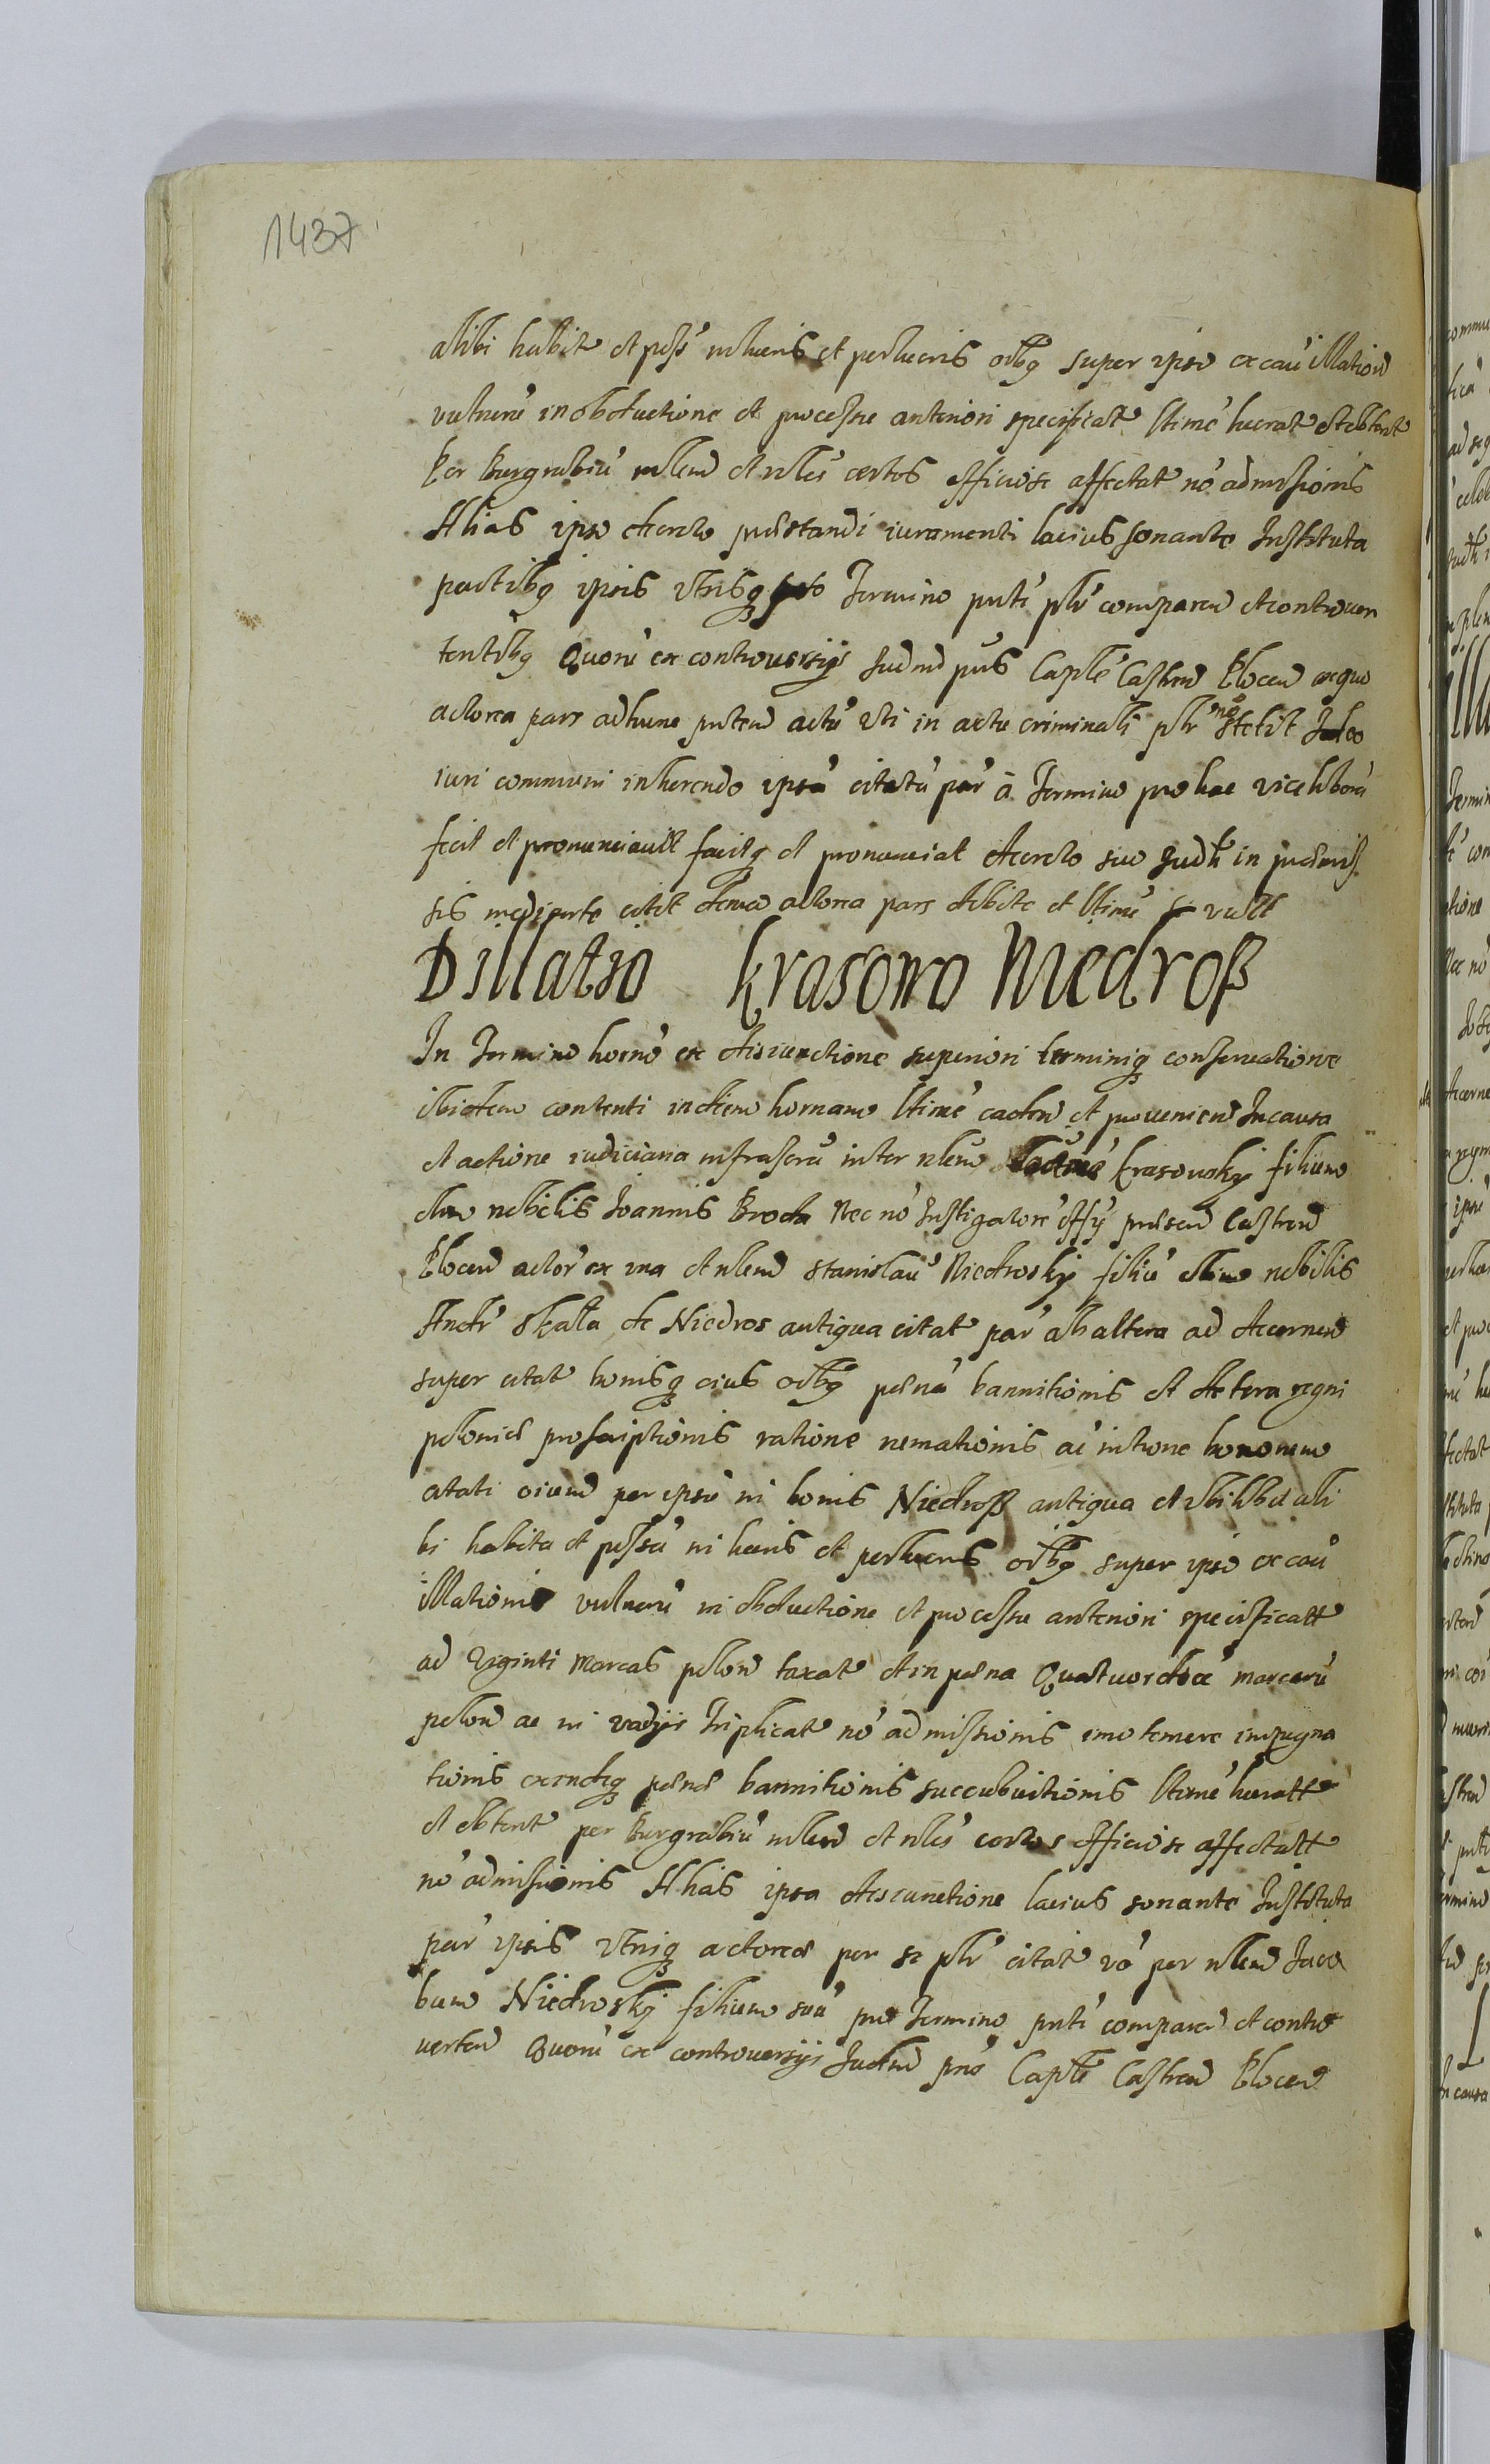 1437
alibi habit et poss inhucris et perlucris oibq super ipso ex cau illation
vulneru in obductione et processu anteriori specificat ltime lucrat et obtent
per Burgrabiu nlem et nles certos officiose affectat no admissionis
Alias ipso decreto praestandi iuramenti lacius sonante Instituta
partibq ipsis vtrisq Termino pnti plr comparen et controuer
tentibq Quoru ex controuersijs Iudm pns Caple Castren Plocen ex quo
actorea pars ad hunc pnten actu vti in actu criminali plr no stetit Ideo
iuri communi inherendo ipsa citata par a Termino pro hac vice libera
fecit et pronunciauit facitq et pronunciat decreto suo Iudm in praemis
sis mediante citet denuo actorea pars debite et ltime si vult
Dillatio Krasowo Niedroß
In Termino horno ex disiunctione superiori terminiq conseruatione
ibidem contenti in diem hornam ltime caden et prouenien In causa
et actione iudiciaria infrascru inter nlem Krasowskij filium
olim nobilis Joannis Broda Nec no Instigatore offij praesen Castren
Plocen actor ex vna et nlem Stanislau Niedroskij filiu olim nobilis
Andr Skala de Niedros antiqua citat par ab altera ad decernen
super citat bonisq eius oibq paena bannitionis et de terra regni
poloniae proscriptionis ratione nemationis ac intione bonorum
citati oium per ipsu in bonis Niedroß antiqua et vbilibet ali
bi habita et possa in lucris et perlucris oibq super ipso ex cau
illationis vulneru in obductione et processu anteriori specificatt
ad viginti marcas polon taxat et in paena Quatuordecē marcaru
polon ac in vadijs triplicat no admissionis imo temere impugna
tionis exindeq paenae bannitionis succubuitionis ltime lucratt
et obtent per Burgrabiu nlem et nles certos officiose affectatt
no admissionis Alias ipsa disiunctione lacius sonante Instituta
par ipsis vtriq actorea per se plr citat vo per nlem Jaco
bum Niedroskj filium suu pro Termino pnti comparen et contro
uerten Quoru ex controuersijs Iudm pns Caple Castren Plocen